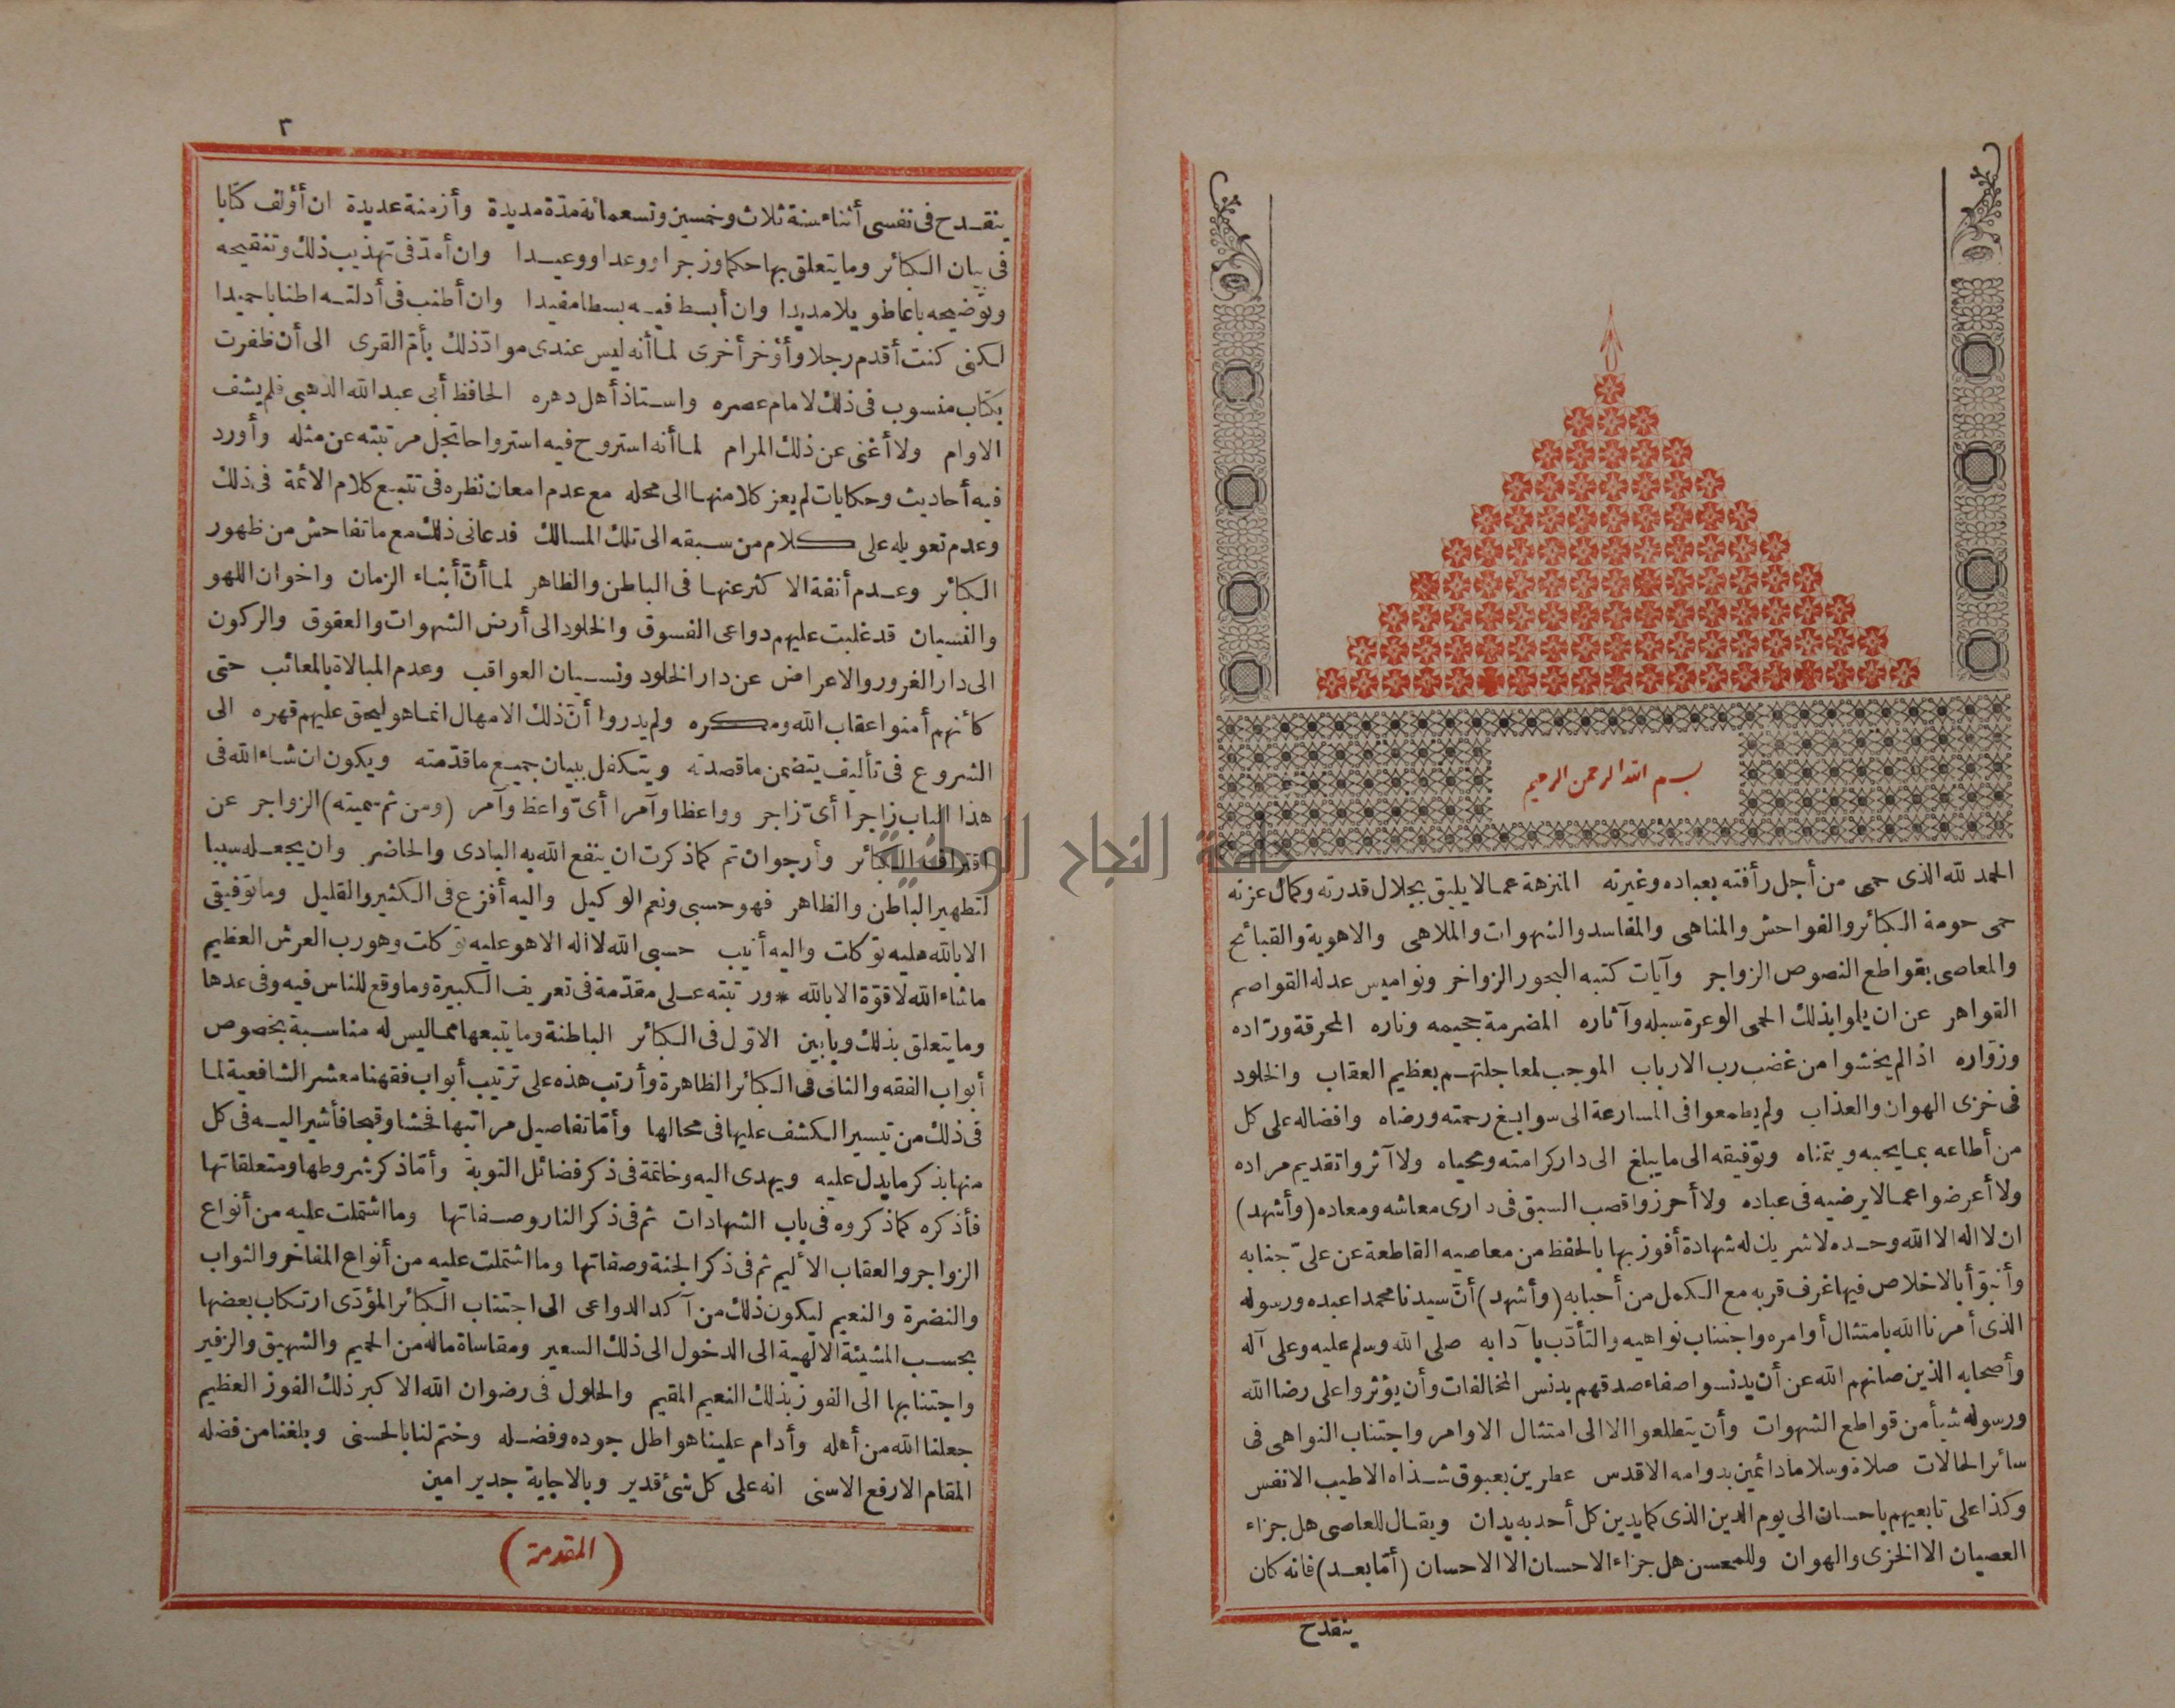 بسم الله الرحمن الرحيم
الحمد لله الذى حمى من أجل رأفته بعباده وغيرته المنزهة عمالا يليق بجلال قدرته وكمال عزته
حمى حومة الكبائر والفواحش والمناهى والمفاسد والشهوات والملاهى والاهوية والقبائح
والمعاصى بقواطع النصوص الزواجر وآيات كتبه البحور الزواخر ونواميس عدله القواصم
القواهر عن ان يلوا بذلك الحمى الوعرة سبله وآثاره المضرمة جحيمه وناره المحرقة ورّاده
وزوّاره اذ لم يخشوا من غضب رب الارباب الموجب لمعاجلتهم بعظيم العقاب والخلود
فى خزى الهوان والعذاب ولم يطمعوا فى المسارعة الى سوابغ رحمته ورضاه وافضاله على كل
من أطاعه بما يحبه ويتمناه وتوفيقه الى ما يبلغ الى دار كرامته ومحياه ولا آثروا تقديم مراده
ولا أعرضوا عمالا يرضيه فى عباده ولا أحرزوا قصب السبق فى دارى معاشه ومعاده (وأشهد)
ان لا اله الا الله وحده لا شريك له شهادة أفوز بها بالحفظ من معاصيه القاطعة عن علىّ جنابه
وأتبوّأ بالاخلاص فيها غرف قربه مع الكمل من أحبابه (وأشهد) أنّ سيدنا محمدا عبده ورسوله
الذى أمرنا الله بامتثال أوامره واجتناب نواهيه والتأدّب بآدابه صلى الله وسلم عليه وعلى آله
وأصحابه الذين صانهم الله عن أن يدنسوا صفاء صدقهم بدنس المخالفات وأن يؤثروا على رضا الله
ورسوله شيأ من قواطع الشهوات وأن يتطلعوا الا الى امتثال الاوامر واجتناب النواهى فى
سائر الحالات صلاة وسلاما دائمين بدوامه الاقدس عطرين بعبوق شذاه الاطيب الانفس
وكذا على تابعيهم باحسان الى يوم الدين الذى كما يدين كل أحد به يدان ويقال للعاصى هل جزاء
العصيان الا الخزى والهوان وللمحسن هل جزاء الاحسان الا الاحسان (أمّا بعد) فانه كان
ينقدح
٣
ينقدح فى نفسى أثناء سنة ثلاث وخمسين وتسعمائة مدّة مديدة وأزمنة عديدة ان أؤلف كتابا
فى بيان الكبائر وما يتعلق بها حكما وزجرا ووعدا ووعيدا وان أمدّ فى تهذيب ذلك وتنقيحه
وتوضيحه باعا طويلا مديدا وان أبسط فيه بسطا مفيدا وان أطنب فى أدلته اطنابا حميدا
لكنى كنت أقدم رجلا وأؤخر أخرى لما أنه ليس عندى موادّ ذلك بأمّ القرى الى أن ظفرت
بكتاب منسوب فى ذلك لامام عصره واستاذ أهل دهره الحافظ أبى عبد الله الذهبى فلم يشف
الاوام ولا أغنى عن ذلك المرام لما أنه استروح فيه استرواحا تجل مرتبته عن مثله وأورد
فيه أحاديث وحكايات لم يعز كلا منها الى محله مع عدم امعان نظره فى تتبع كلام الائمة فى ذلك
وعدم تعويله على كلام من سبقه الى تلك المسالك فدعانى ذلك مع ما تفاحش من ظهور
الكبائر وعدم أنفة الاكثر عنها فى الباطن والظاهر لما أنّ أبناء الزمان واخوان اللهو
والنسيان قد غلبت عليهم دواعى الفسوق والخلود الى أرض الشهوات والعقوق والركون
الى دار الغرور والاعراض عن دار الخلود ونسيان العواقب وعدم المبالاة بالمعائب حتى
كأنهم أمنوا عقاب الله ومكره ولم يدروا أنّ ذلك الامهال انما هو ليحق عليهم قهره الى
الشروع فى تأليف يتضمن ما قصدته ويتكفل ببيان جميع ما قدّمته ويكون ان شاء الله فى
هذا الباب زاجرا أىّ زاجر وواعظا وآمرا أىّ واعظ وآمر (ومن ثم سميته) الزواجر عن
اقتراف الكبائر وأرجو ان تم كما ذكرت ان ينفع الله به البادى والحاضر وان يجعله سببا
لتطهير الباطن والظاهر فهو حسبى ونعم الوكيل واليه أفزع فى الكثير والقليل وما توفيقى
الا بالله عليه توكلت واليه أنيب حسبى الله لا اله الا هو عليه توكلت وهو رب العرش العظيم
ما شاء الله لا قوّة الا بالله * ورتبته على مقدّمة فى تعريف الكبيرة وما وقع للناس فيه وفى عدها
وما يتعلق بذلك وبابين الاوّل فى الكبائر الباطنة وما يتبعها مما ليس له مناسبة بخصوص
أبواب الفقه والثانى فى الكبائر الظاهرة وأرتب هذه على ترتيب أبواب فقهنا معشر الشافعية لما
فى ذلك من تيسير الكشف عليها فى محالها وأمّا تفاصيل مراتبها فحشا وقبحا فأشير اليه فى كل
منها بذكر ما يدل عليه ويهدى اليه وخاتمة فى ذكر فضائل التوبة وأمّا ذكر شروطها ومتعلقاتها
فأذكره كما ذكروه فى باب الشهادات ثم فى ذكر النار وصفاتها وما اشتملت عليه من أنواع
الزواجر والعقاب الأليم ثم فى ذكر الجنة وصفاتها وما اشتملت عليه من أنواع المفاخر والثواب
والنضرة والنعيم ليكون ذلك من آكد الدواعى الى اجتناب الكبائر المؤدّى ارتكاب بعضها
بحسب المشيئة الالهية الى الدخول الى ذلك السعير ومقاساة ماله من الحميم والشهيق والزفير
واجتنابها الى الفوز بذلك النعيم المقيم والحلول فى رضوان الله الاكبر ذلك الفوز العظيم
جعلنا الله من أهله وأدام علينا هواطل جوده وفضله وختم لنا بالحسنى وبلغنا من فضله
المقام الارفع الاسنى انه على كل شئ قدير وبالاجابة جدير امين
(المقدمة)
جامعة النجاح الوطنية